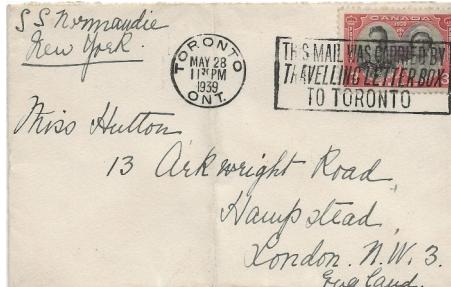 S S Normandie
New York.
TORONTO
MAY 28
11 PM
1939
ONT.
CANADA
THIS MAIL WAS CARRIED BY
TRAVELLING LETTER BOX
TO TORONTO
3
Miss Hutton
13 Arkwright Road,
Hampstead,
London. N.W. 3.
England.